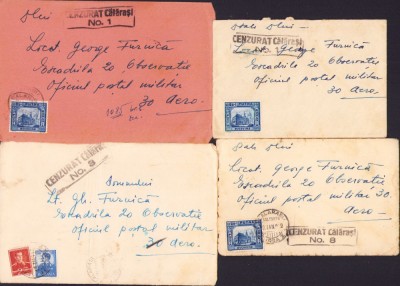 Dlui
CENZURAT Călăraşi
No. 1
Locot. George Furnică
Escadrila 20 Observaţie
Oficiul postal militar
30 Aero.
D-sale Dlui
CENZURAT Călăraşi
No. 1
Locot. George Furnică
Escadrila 20 Observaţie
Oficiul postal militar
30 Aero.
CENZURAT Călăraşi
No. 8
Domnului
Lt. Gh. Furnică
Escadrila 20 Observaţie
Oficiul postal militar
30 Aero.
D-sale Dlui
Locot. George Furnică
Escadrila 20 Observaţie
Oficiul postal militar
30 Aero.
CENZURAT Călăraşi
No. 8